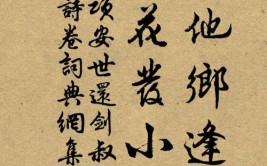 他鄉逢
花發小
項安世還劍叔
詩卷詞典網集